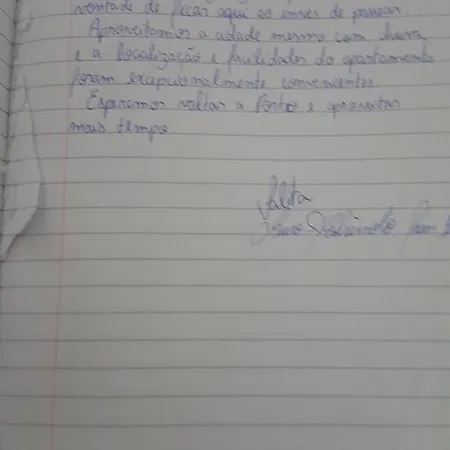 vontade de ficar aqui ao invés de passear.
Aproveitamos a cidade mesmo com chuva,
e a localização e facilidades do apartamento
foram excepcionalmente convenientes.
Esperamos voltar a Porto e aproveitar
mais tempo
Talita